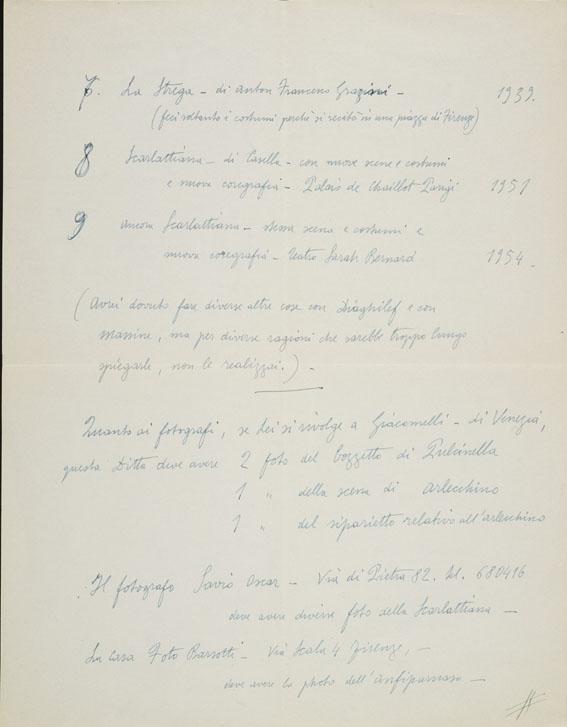 7. La Strega – di Anton Francesco Grazini – 1939.
(feci soltanto i costumi perchè si recitò in una piazza di Firenze)
8 Scarlattiana – di Casella – con nuove scene e costumi
e nuova coregrafia – Palais de Chaillot Parigi 1951
9 ancora Scarlattiana – stessa scena e costumi e
nuova coregrafia – teatro Sarah Bernard 1954 –
(Avrei dovuto fare diverse altre cose con Diaghilef e con
Massine, ma per diverse ragioni che sarebbe troppo lungo
spiegarle, non le realizzai.) –
Quanto ai fotografi, se Lei si rivolge a Giacomelli – di Venezia,
questa Ditta deve avere 2 foto del bozzetto di Pulcinella
1 " della scena di Arlecchino
1 " del siparietto relativo all'arlecchino
Il fotografo Savio Oscar – Via di Pietra 82. tel. 680416
deve avere diverse foto della Scarlattiana –
La casa Foto Barsotti – Via Scala 4 Firenze, –
deve avere la photo dell'anfiparnaso –